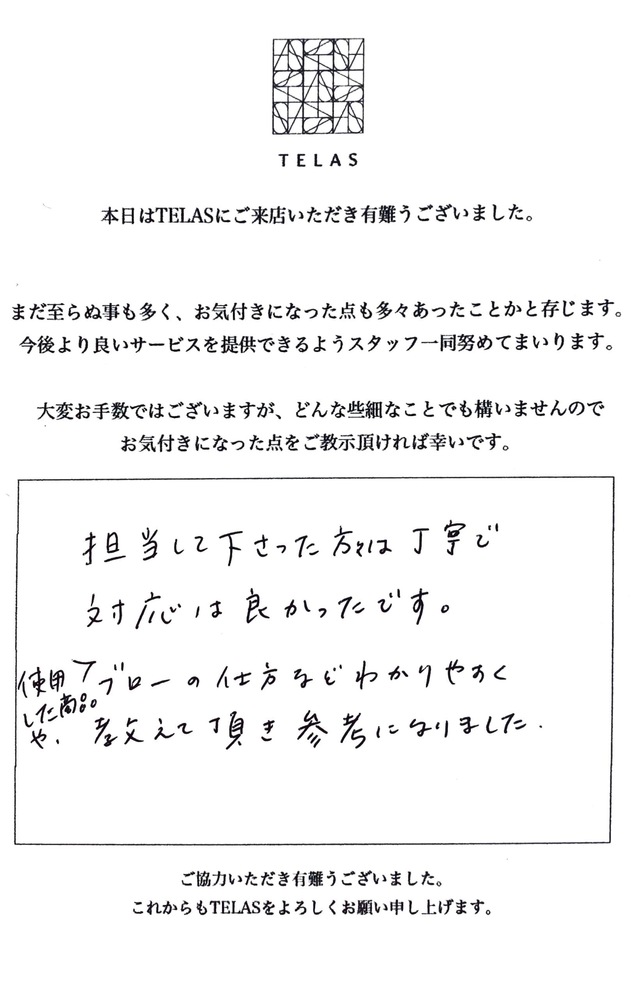 TELAS
本日はTELASにご来店いただき有難うございました。
まだ至らぬ事も多く、お気付きになった点も多々あったことかと存じます。
今後より良いサービスを提供できるようスタッフ一同努めてまいります。
大変お手数ではございますが、どんな些細なことでも構いませんので
お気付きになった点をご教示頂ければ幸いです。
担当して下さった方々は丁寧で
対応は良かったです。
使用した商品や、
ブローの仕方などわかりやすく
教えて頂き参考になりました.
ご協力いただき有難うございました。
これからもTELASをよろしくお願い申し上げます。